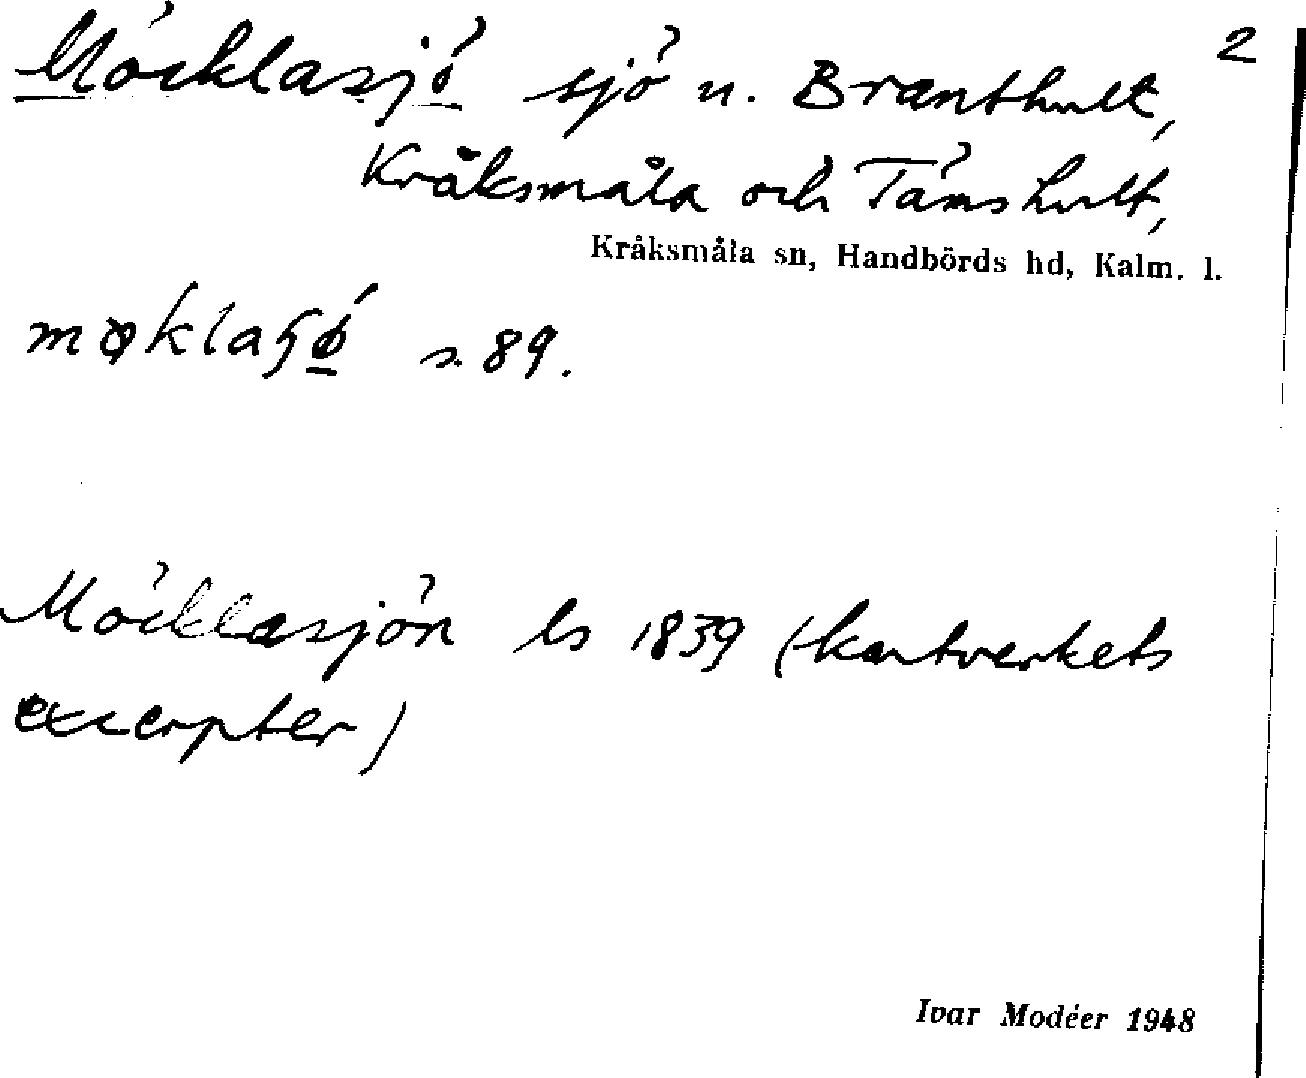 2
Möcklasjö sjö u. Branthult,
Kråksmåla och Tämshult,
Kråksmåla sn, Handbörds hd, Kalm. l.
s. 89.
Möcklasjön ls 1839 (kartverkets
excerpter)
Ivar Modéer 1948